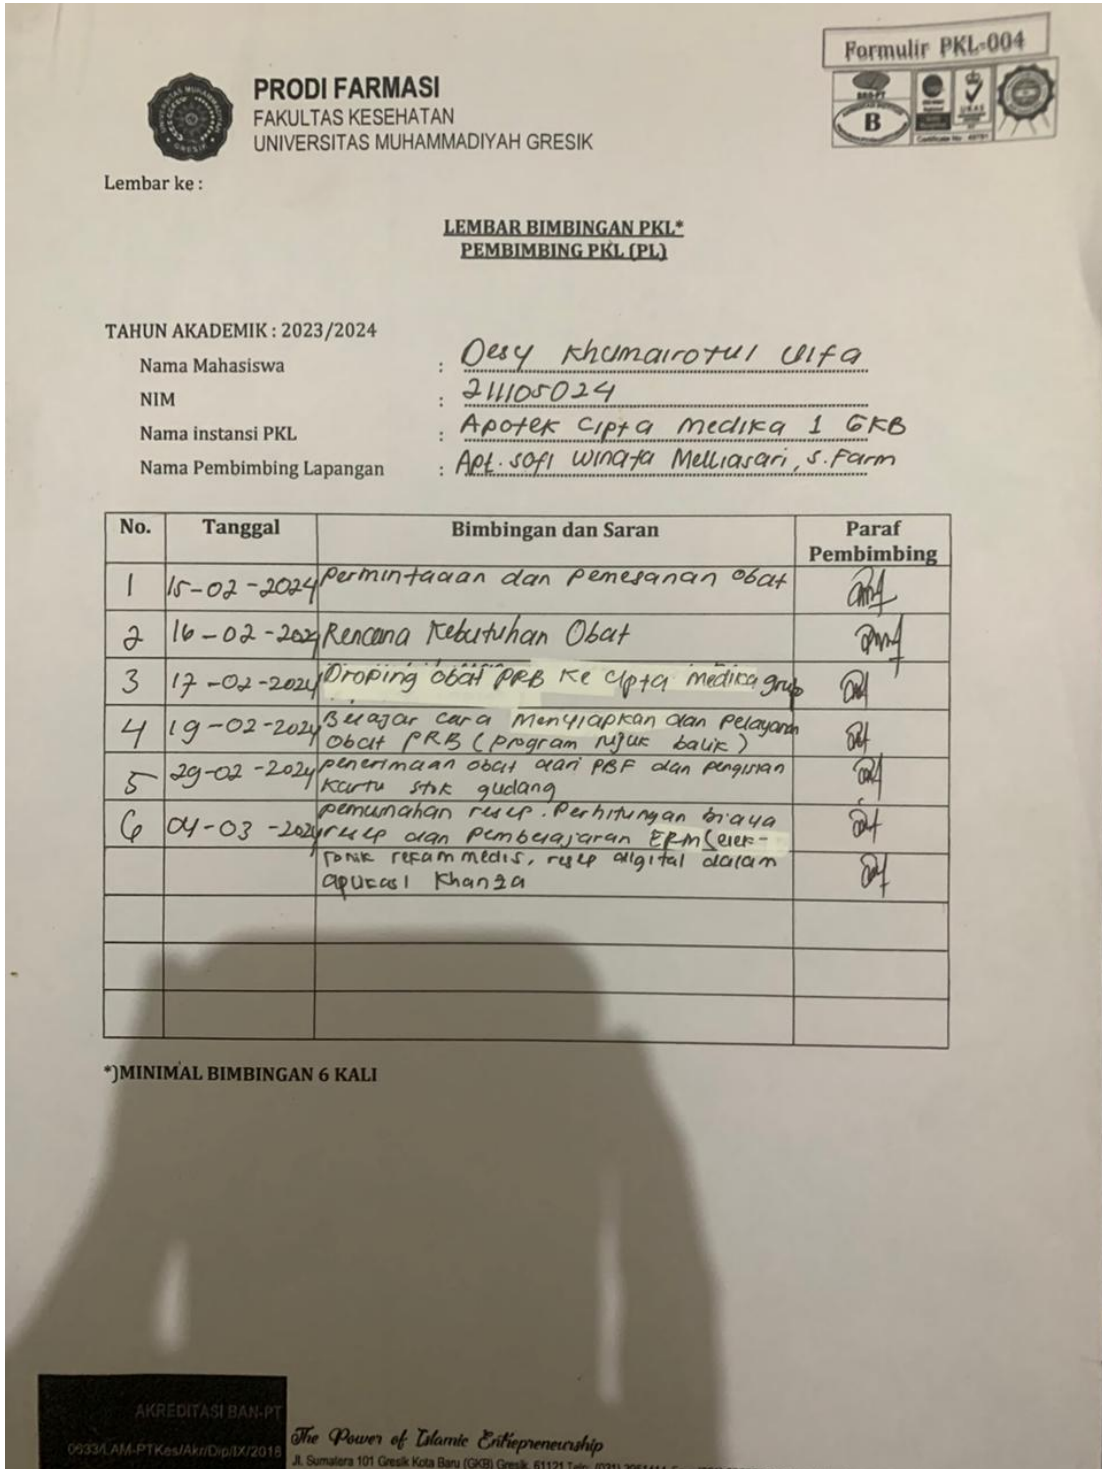 Formulir PKL-004
PRODI FARMASI
FAKULTAS KESEHATAN
UNIVERSITAS MUHAMMADIYAH GRESIK
B
UKAS
Lembar ke :
LEMBAR BIMBINGAN PKL*
PEMBIMBING PKL (PL)
TAHUN AKADEMIK : 2023/2024
Nama Mahasiswa : Desy Khumairotul Ulfa
NIM : 211105024
Nama instansi PKL : Apotek Cipta Medika 1 GKB
Nama Pembimbing Lapangan : Apt. Sofi Winata Melliasari, S.Farm
No. Tanggal Bimbingan dan Saran Paraf Pembimbing
1 15-02-2024 Permintaaan dan Pemesanan Obat
2 16-02-2024 Rencana Kebutuhan Obat
3 17-02-2024 Droping obat PRB ke cipta medika grup
4 19-02-2024 Belajar cara Menyiapkan dan Pelayanan
Obat PRB (program rujuk balik)
5 29-02-2024 penerimaan obat dari PBF dan pengisian
kartu stok gudang
6 04-03-2024 pemusnahan resep. Perhitungan biaya
resep dan pembelajaran ERM (elek-
tonik rekam medis, resep digital dalam
aplikasi Khanza
*)MINIMAL BIMBINGAN 6 KALI
AKREDITASI BAN-PT
0633/LAM-PTKes/Akr/Dip/IX/2016
The Power of Islamic Entrepreneurship
Jl. Sumatera 101 Gresik Kota Baru (GKB) Gresik 61121